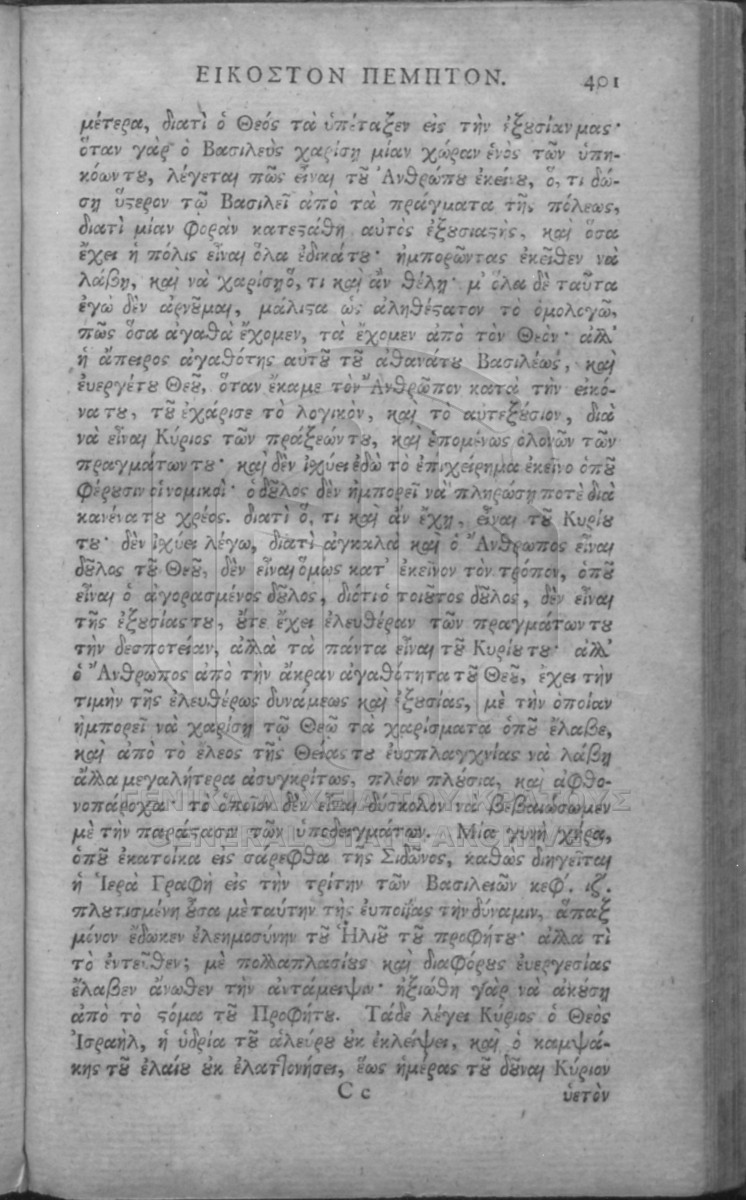 ΕΙΚΟΣΤΟΝ ΠΕΜΠΤΟΝ. 401
μέτερα, διατὶ ὁ Θεός τὰ ὑπέταξεν εἰς τὴν ἐξȣσίαν μας·
ὅταν γὰρ ὁ Βασιλεὺς χαρίσῃ μίαν χώραν ἑνὸς τῶν ὑπη-
κόων τȣ, λέγεται πῶς εἶναι τȣ͂ Ἀνθρώπȣ ἐκείνȣ, ὅ, τι δώ-
σῃ ὕϛερον τῷ Βασιλεῖ ἀπὸ τὰ πράγματα τῆς πόλεως,
διατὶ μίαν φορὰν κατεϛάθη αὐτὸς ἐξȣσιαϛὴς, καὶ ὅσα
ἔχει ἡ πόλις εἶναι ὅλα ἐδικάτȣ· ἠμπορῶντας ἐκεῖθεν νὰ
λάβῃ, καὶ νὰ χαρίσῃ ὅ, τι καὶ ἂν θέλῃ· μ' ὅλα δὲ ταῦτα
ἐγὼ δὲν ἀρνȣ͂μαι, μάλιϛα ὡς ἀληθέϛατον τὸ ὁμολογῶ,
πῶς ὅσα ἀγαθὰ ἔχομεν, τὰ ἔχομεν ἀπὸ τὸν Θεὸν· ἀλλ'
ἡ ἄπειρος ἀγαθότης αὐτȣ͂ τȣ͂ ἀθανάτȣ Βασιλέως, καὶ
ἐυεργέτȣ Θεȣ, ὅταν ἔκαμε τὸν Ἄνθρωπον κατὰ τὴν εἰκό-
να τȣ, τȣ͂ ἐχάρισε τὸ λογικὸν, καὶ τὸ αὐτεξȣ́σιον, διὰ
νὰ εἶναι Κύριος τῶν πράξεών τȣ, καὶ ἑπομένως ὁλονῶν τῶν
πραγμάτων τȣ· καὶ δὲν ἰχύει ἐδὼ τὸ ἐπιχείρημα ἐκεῖνο ὁπȣ͂
φέρȣσιν οἱ νομικοὶ· ὁ δȣ͂λος δὲν ἠμπορεῖ νὰ πληρώσῃ ποτὲ διὰ
κανένα τȣ χρέος. διατὶ ὅ, τι καὶ ἂν ἔχῃ, εἶναι τȣ͂ Κυρίȣ
τȣ· δὲν ἰχύει λέγω, διατὶ ἀγκαλὰ καὶ ὁ Ἄνθρωπος εἶναι
δȣ͂λος τȣ͂ Θεȣ͂, δὲν εἶναι ὅμως κατ' ἐκεῖνον τὸν τρόπον, ὁπȣ͂
εἶναι ὁ ἀγορασμένος δȣ͂λος, διότι ὁ τοιȣ͂τος δȣ͂λος, δὲν εἶναι
τῆς ἐξȣσίας τȣ, ȣ̓́τε ἔχει ἐλευθέραν τῶν πραγμάτων τȣ
τὴν δεσποτείαν, ἀλλὰ τὰ πάντα εἶναι τȣ͂ Κυρίȣ τȣ· ἀλλ'
ὁ Ἄνθρωπος ἀπὸ τὴν ἄκραν ἀγαθότητα τȣ͂ Θεȣ͂, ἔχει τὴν
τιμὴν τῆς ἐλευθέρως δυνάμεως καὶ ἐξȣσίας, μὲ τὴν ὁποίαν
ἠμπορεῖ νὰ χαρίσῃ τῷ Θεῷ τὰ χαρίσματα ὁπȣ͂ ἔλαβε,
καὶ ἀπὸ τὸ ἔλεος τῆς Θείας τȣ ἐυσπλαγχνίας νὰ λάβῃ
ἄλλα μεγαλήτερα ἀσυγκρίτως, πλέον πλȣ́σια, καὶ ἀφθο-
νοπάροχα· τὸ ὁποῖον δὲν εἶναι δύσκολον νὰ βεβαιώσωμεν
μὲ τὴν παράϛασιν τῶν ὑποδειγμάτων. Μία γυνὴ χήρα,
ὁπȣ͂ ἐκατοίκα εἰς σάρεφθα τῆς Σιδῶνος, καθὼς διηγεῖται
ἡ Ἱερὰ Γραφὴ εἰς τὴν τρίτην τῶν Βασιλειῶν κεφ. ιζ.
πλȣτισμένη ȣ̓͂σα μὲ ταύτην τῆς ἐυποιΐας τὴν δύναμιν, ἅπαξ
μόνον ἔδωκεν ἐλεημοσύνην τȣ͂ Ἠλιȣ͂ τȣ͂ προφήτȣ· ἀλλα τὶ
τὸ ἐντεῦθεν; μὲ πολλαπλασίȣς καὶ διαφόρȣς ἐυεργεσίας
ἔλαβεν ἄνωθεν τὴν ἀντάμειψιν· ἠξιώθη γὰρ νὰ ἀκȣ́σῃ
ἀπὸ τὸ ϛόμα τȣ͂ Προφήτȣ. Τάδε λέγει Κύριος ὁ Θεὸς
Ἰσραὴλ, ἡ ὑδρία τȣ͂ ἀλεύρȣ ȣ̓κ ἐκλείψει, καὶ ὁ καμψά-
κης τȣ͂ ἐλαίȣ ȣ̓κ ἐλαττονήσει, ἕως ἡμέρας τȣ͂ δȣ͂ναι Κύριον
C c ὑετὸν
ΓΕΝΙΚΑ ΑΡΧΕΙΑ ΤΟΥ ΚΡΑΤΟΥΣ
GENERAL STATE ARCHIVES